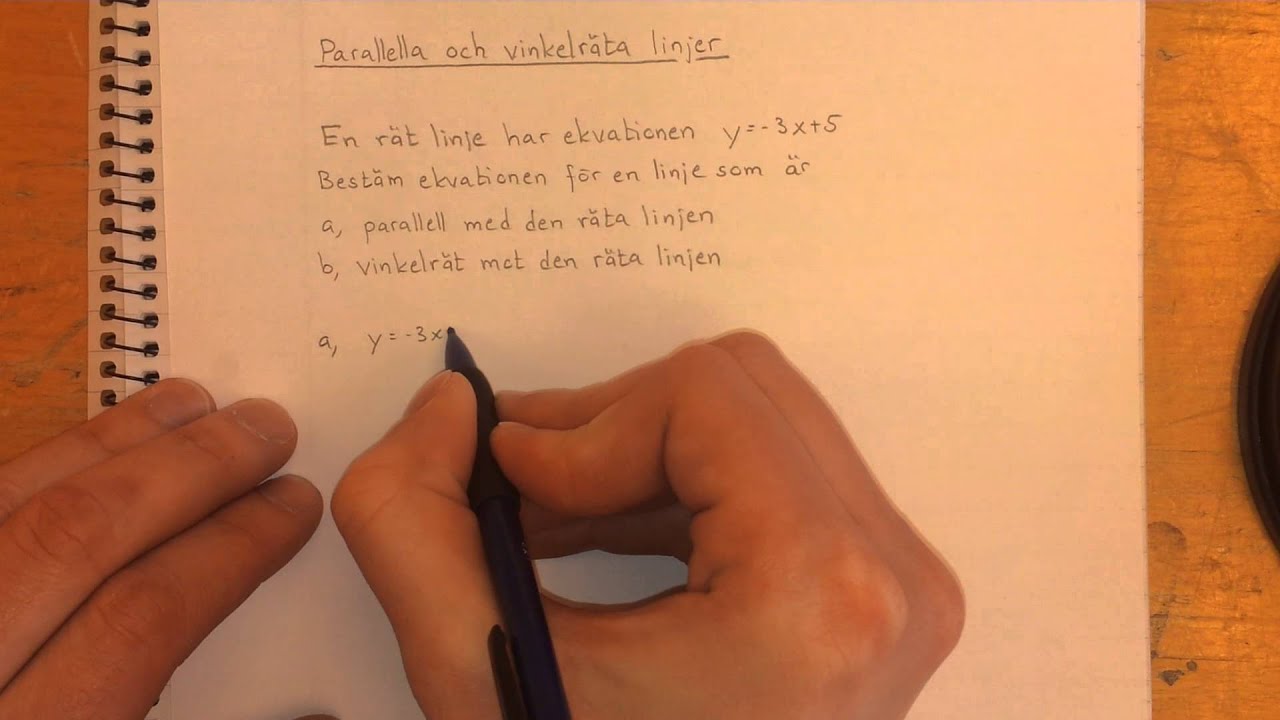 Parallella och vinkelräta linjer
En rät linje har ekvationen y=-3x+5
Bestäm ekvationen för en linje som är
a, parallell med den räta linjen
b, vinkelrät mot den räta linjen
a, y=-3x